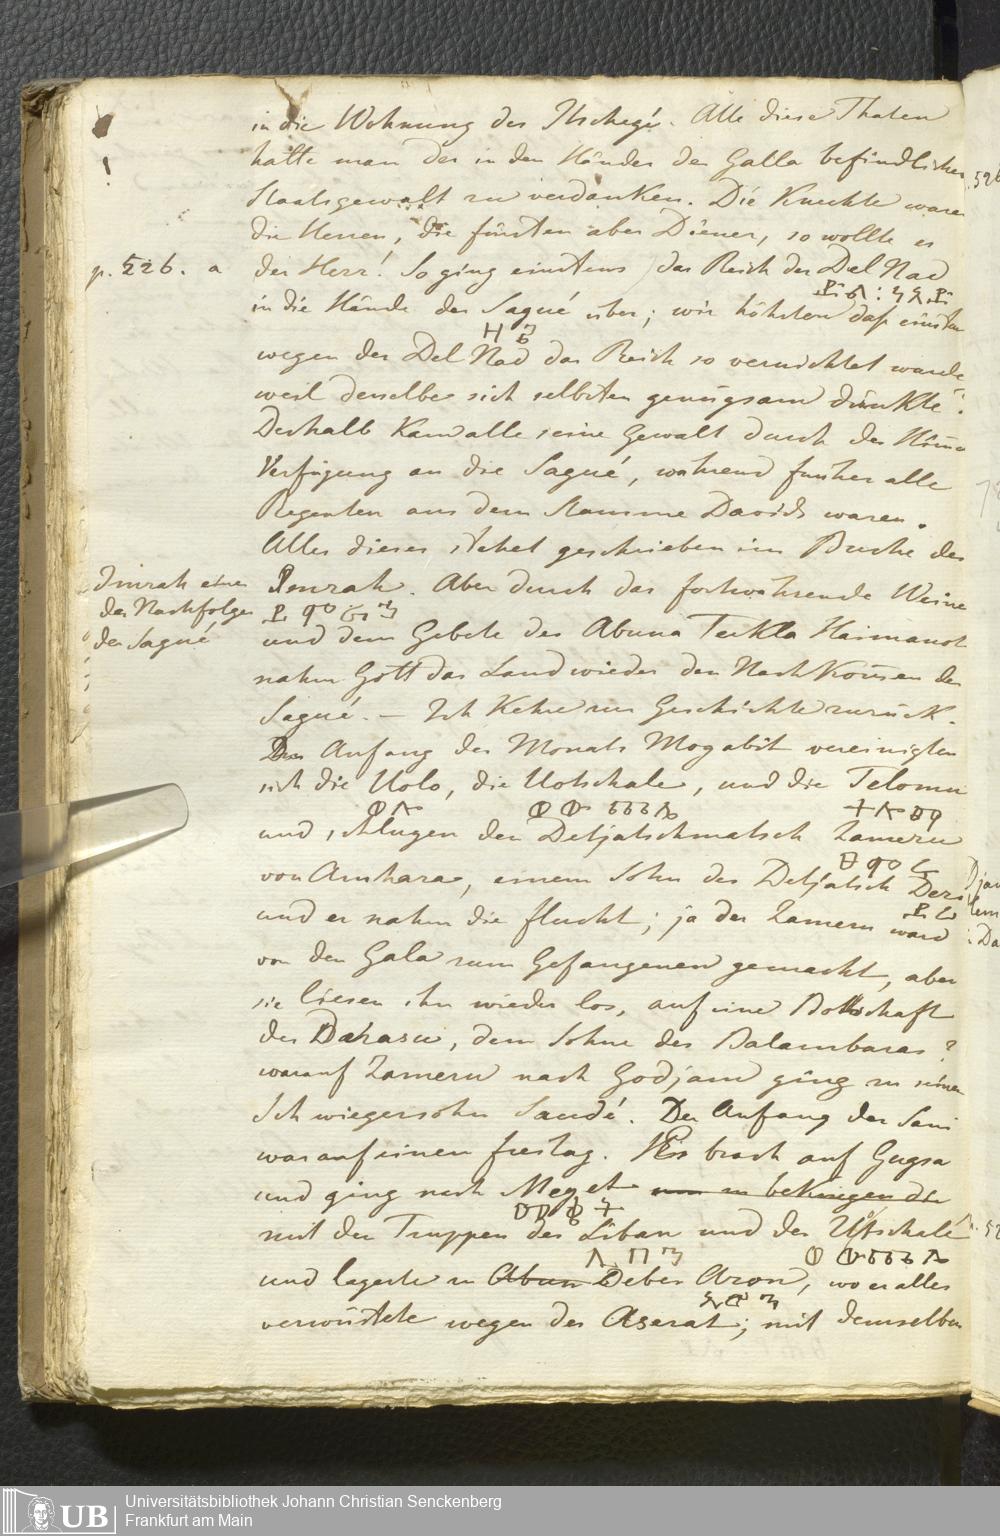 in die Wohnung des Itschegé. Alle diese Thaten
hatte man der in den Händen der Galla befindlichen
Staatsgewalt zu verdanken. Die Knechte waren
die Herren, die fürsten aber Diener, so wollte es
p. 526. a
der Herr! So ging einstens das Reich der Del Nad
in die Hände der Sagué über; wir höhrten daß einsten
wegen der Del Nad das Reich so vernichtet wurde
weil derselbe sich selbsten genügsam dünkte.
Deshalb kam alle seine Gewalt durch des Him̄
Verfügung an die Sagué, während früher alle
Regenten aus dem Stamme Davids waren.
Alles dieses stehet geschrieben im Buche des
Imrah einer
der Nachfolger
der Sagué
Imrah. Aber durch das fortwährende Weine
und dem Gebete des Abuna Tekla Haimanot
nahm Gott das Land wieder den Nachkomen der
Sagué. — Ich kehre zur Geschichte zurück.
Den Anfang des Monats Mogabit vereinigten
sich die Uolo, die Uotschale, und die Telomu
und schlugen den Detjatschmatsch Zameru
von Amhara, einem Sohn des Detjatsch Ders
und er nahm die flucht; ja der Zameru ward
von den Gala zum Gefangenen gemacht, aber
sie liesen ihn wieder los, auf eine Bothschaft
des Dahasu, dem Sohne des Balambaras?
worauf Zameru nach Godjam ging zu seinem
Schwiegersohn Saudé. Der Anfang des Sani
war auf einen freitag. Es brach auf Gugsa
und ging nach Meget
mit den Truppen des Liban und der Utschalé
und lagerte zu Deber Aron, wo er alles
verwüstete wegen des Aserat; mit demselben
Universitätsbibliothek Johann Christian Senckenberg
Frankfurt am Main
UB